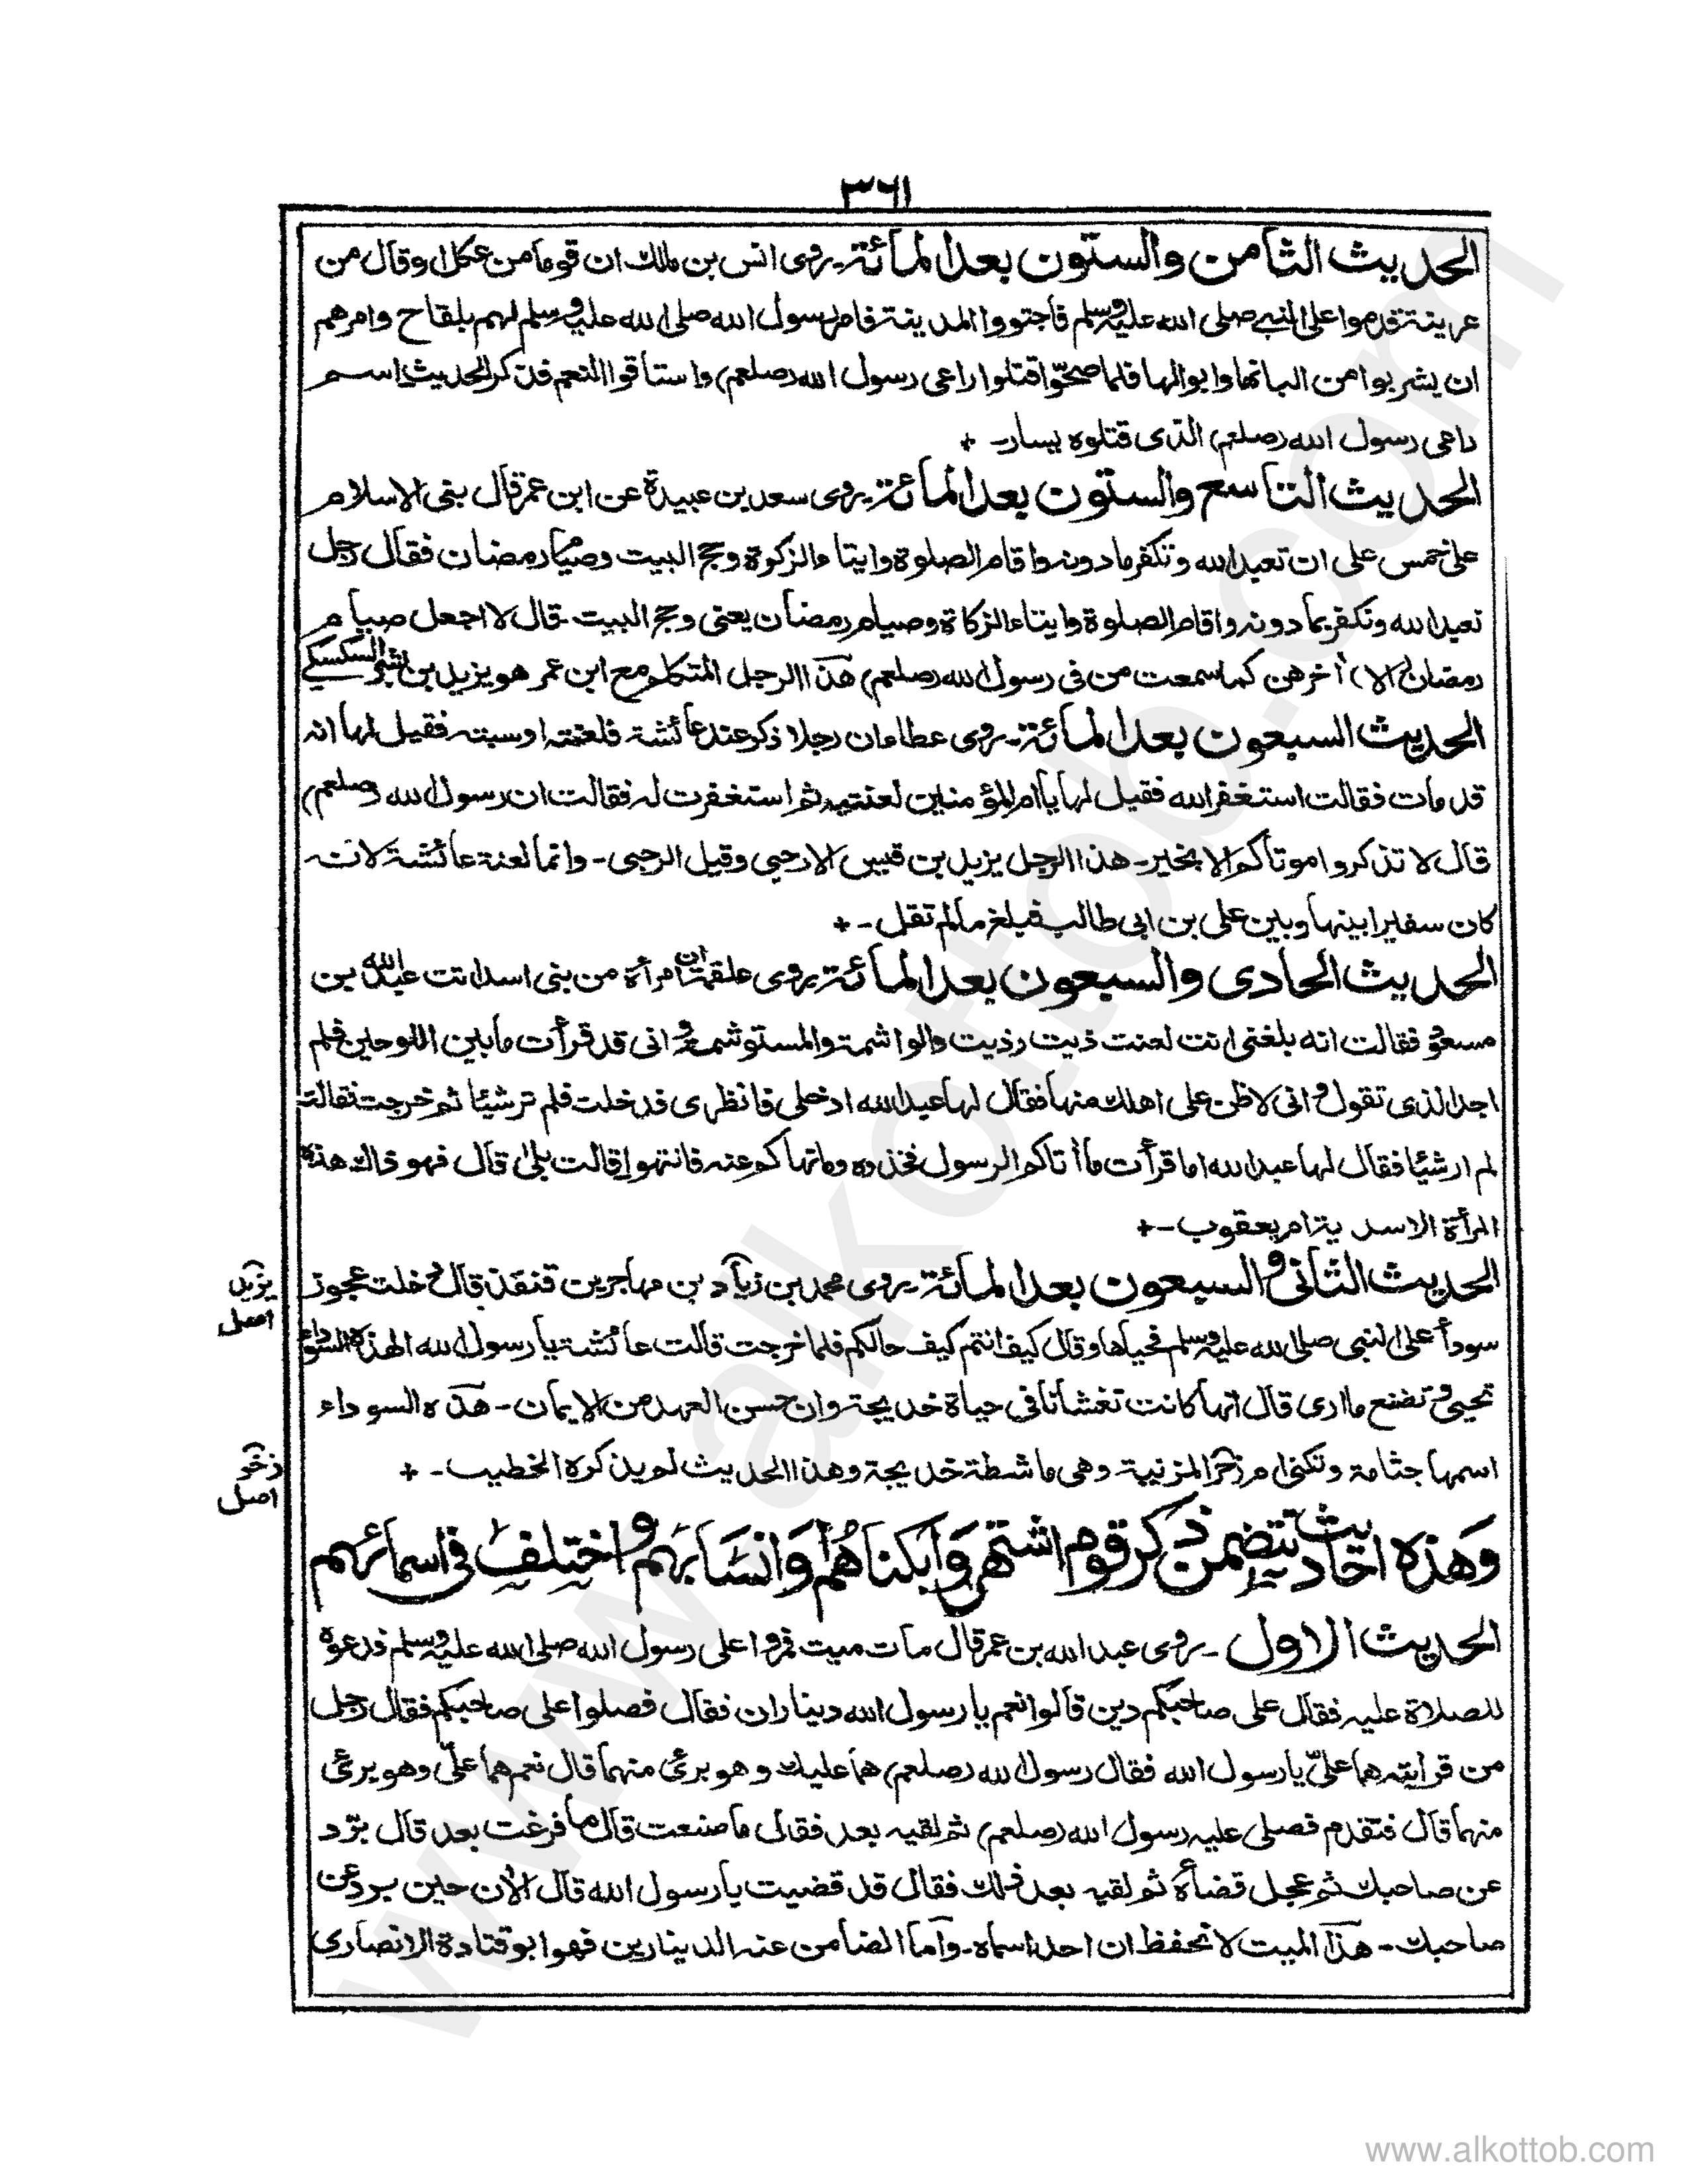 ٣٦١
الحديث الثامن والستون بعد المائة ـ روى انس بن مالك ان قوما من عكل او قال من
عرينة قدموا على النبي صلى الله عليه وسلم فاجتووا المدينة فامر رسول الله صلى الله عليه وسلم لهم بلقاح وامرهم
ان يشربوا من البانها وابوالها فلما صحّوا قتلوا راعى رسول الله (صلعم) واستاقوا النعم فذكر الحديث اسم
راعى رسول الله (صلعم) الذى قتلوه يسار ـ +
الحديث التاسع والستون بعد المائة ـ روى سعد بن عبيدة عن ابن عمر قال بنى الاسلام
على خمس على ان تعبد الله وتكفر ما دونه واقام الصلوة وايتاء الزكوة وحج البيت وصيام رمضان فقال رجل
تعبد الله وتكفر بما دونه واقام الصلوة وايتاء الزكاة وصيام رمضان يعنى وحج البيت ـ قال لا اجعل صيام
رمضان (الا) أخرهن كما سمعت من فى رسول الله (صلعم) هذا الرجل المتكلم مع ابن عمر هو يزيد بن بشر السكسكي
الحديث السبعون بعد المائة ـ روى عطاء ان رجلا ذكر عند عائشة فلعنته او سبته فقيل لها انه
قد مات فقالت استغفر الله فقيل لها يا ام المؤمنين لعنتيه ثم استغفرت له فقالت ان رسول الله (صلعم)
قال لا تذكروا موتاكم الا بخير ـ هذا الرجل يزيد بن قيس الارحبى وقيل الرحبى ـ وانما لعنة عائشة لانه
كان سفيرا بينها وبين على بن ابى طالب فبلغ ما لم تقل ـ +
الحديث الحادى والسبعون بعد المائة ـ روى علقمة ان امرأة من بنى اسد اتت عبد الله بن
مسعود فقالت انه بلغنى انت لعنت ذيت وذيت والواشمة والمستوشمة وانى قد قرأت ما بين اللوحين فلم
اجد الذى تقول وانى لاظن على اهلك منها فقال لها عبد الله ادخلى فانظرى فدخلت فلم تر شيئا ثم خرجت فقالت
لم ار شيئا فقال لها عبد الله اما قرأت ما أتاكم الرسول فخذوه وما نهاكم عنه فانتهوا قالت بلى قال فهو ذاك هذه
المرأة الاسدية ام يعقوب ـ +
الحديث الثانى والسبعون بعد المائة ـ روى محمد بن زياد بن مهاجر بن قنفذ قال دخلت عجوز
سودأ على النبى صلى الله عليه وسلم فحياها وقال كيف انتم كيف حالكم فلما خرجت قالت عائشة يا رسول الله الهذه السوداء
تحيى وتصنع ما ارى قال انها كانت تغشانا فى حياة خديجة وان حسن العهد من الايمان ـ هذه السوداء
اسمها جثامة وتكنى ام زخر المزنية وهى ماشطة خديجة وهذا الحديث لم يذكره الخطيب ـ +
يزيد
اصل
زخر
اصل
وهذه احاديث تتضمن ذكر قوم اشتهروا بكناهم وانسابهم واختلف فى اسمائهم
الحديث الاول ـ روى عبد الله بن عمر قال مات ميت فمروا على رسول الله صلى الله عليه وسلم فدعوه
للصلاة عليه فقال على صاحبكم دين قالوا نعم يا رسول الله ديناران فقال فصلوا على صاحبكم فقال رجل
من قرابته هما علىّ يا رسول الله فقال رسول الله (صلعم) هما عليك وهو برئ منهما قال نعم هما علىّ وهو برئ
منهما قال فتقدم فصلى عليه رسول الله (صلعم) ثم لقيه بعد فقال ما صنعت قال ما فرغت بعد قال برّد
عن صاحبك ثم عجل قضاءه ثم لقيه بعد ذلك فقال قد قضيت يا رسول الله قال الأن حين برد عن
صاحبك ـ هذا الميت لا نحفظ ان احدا سماه ـ واما الضامن عنه الدينارين فهو ابو قتادة الانصارى
www.alkottob.com